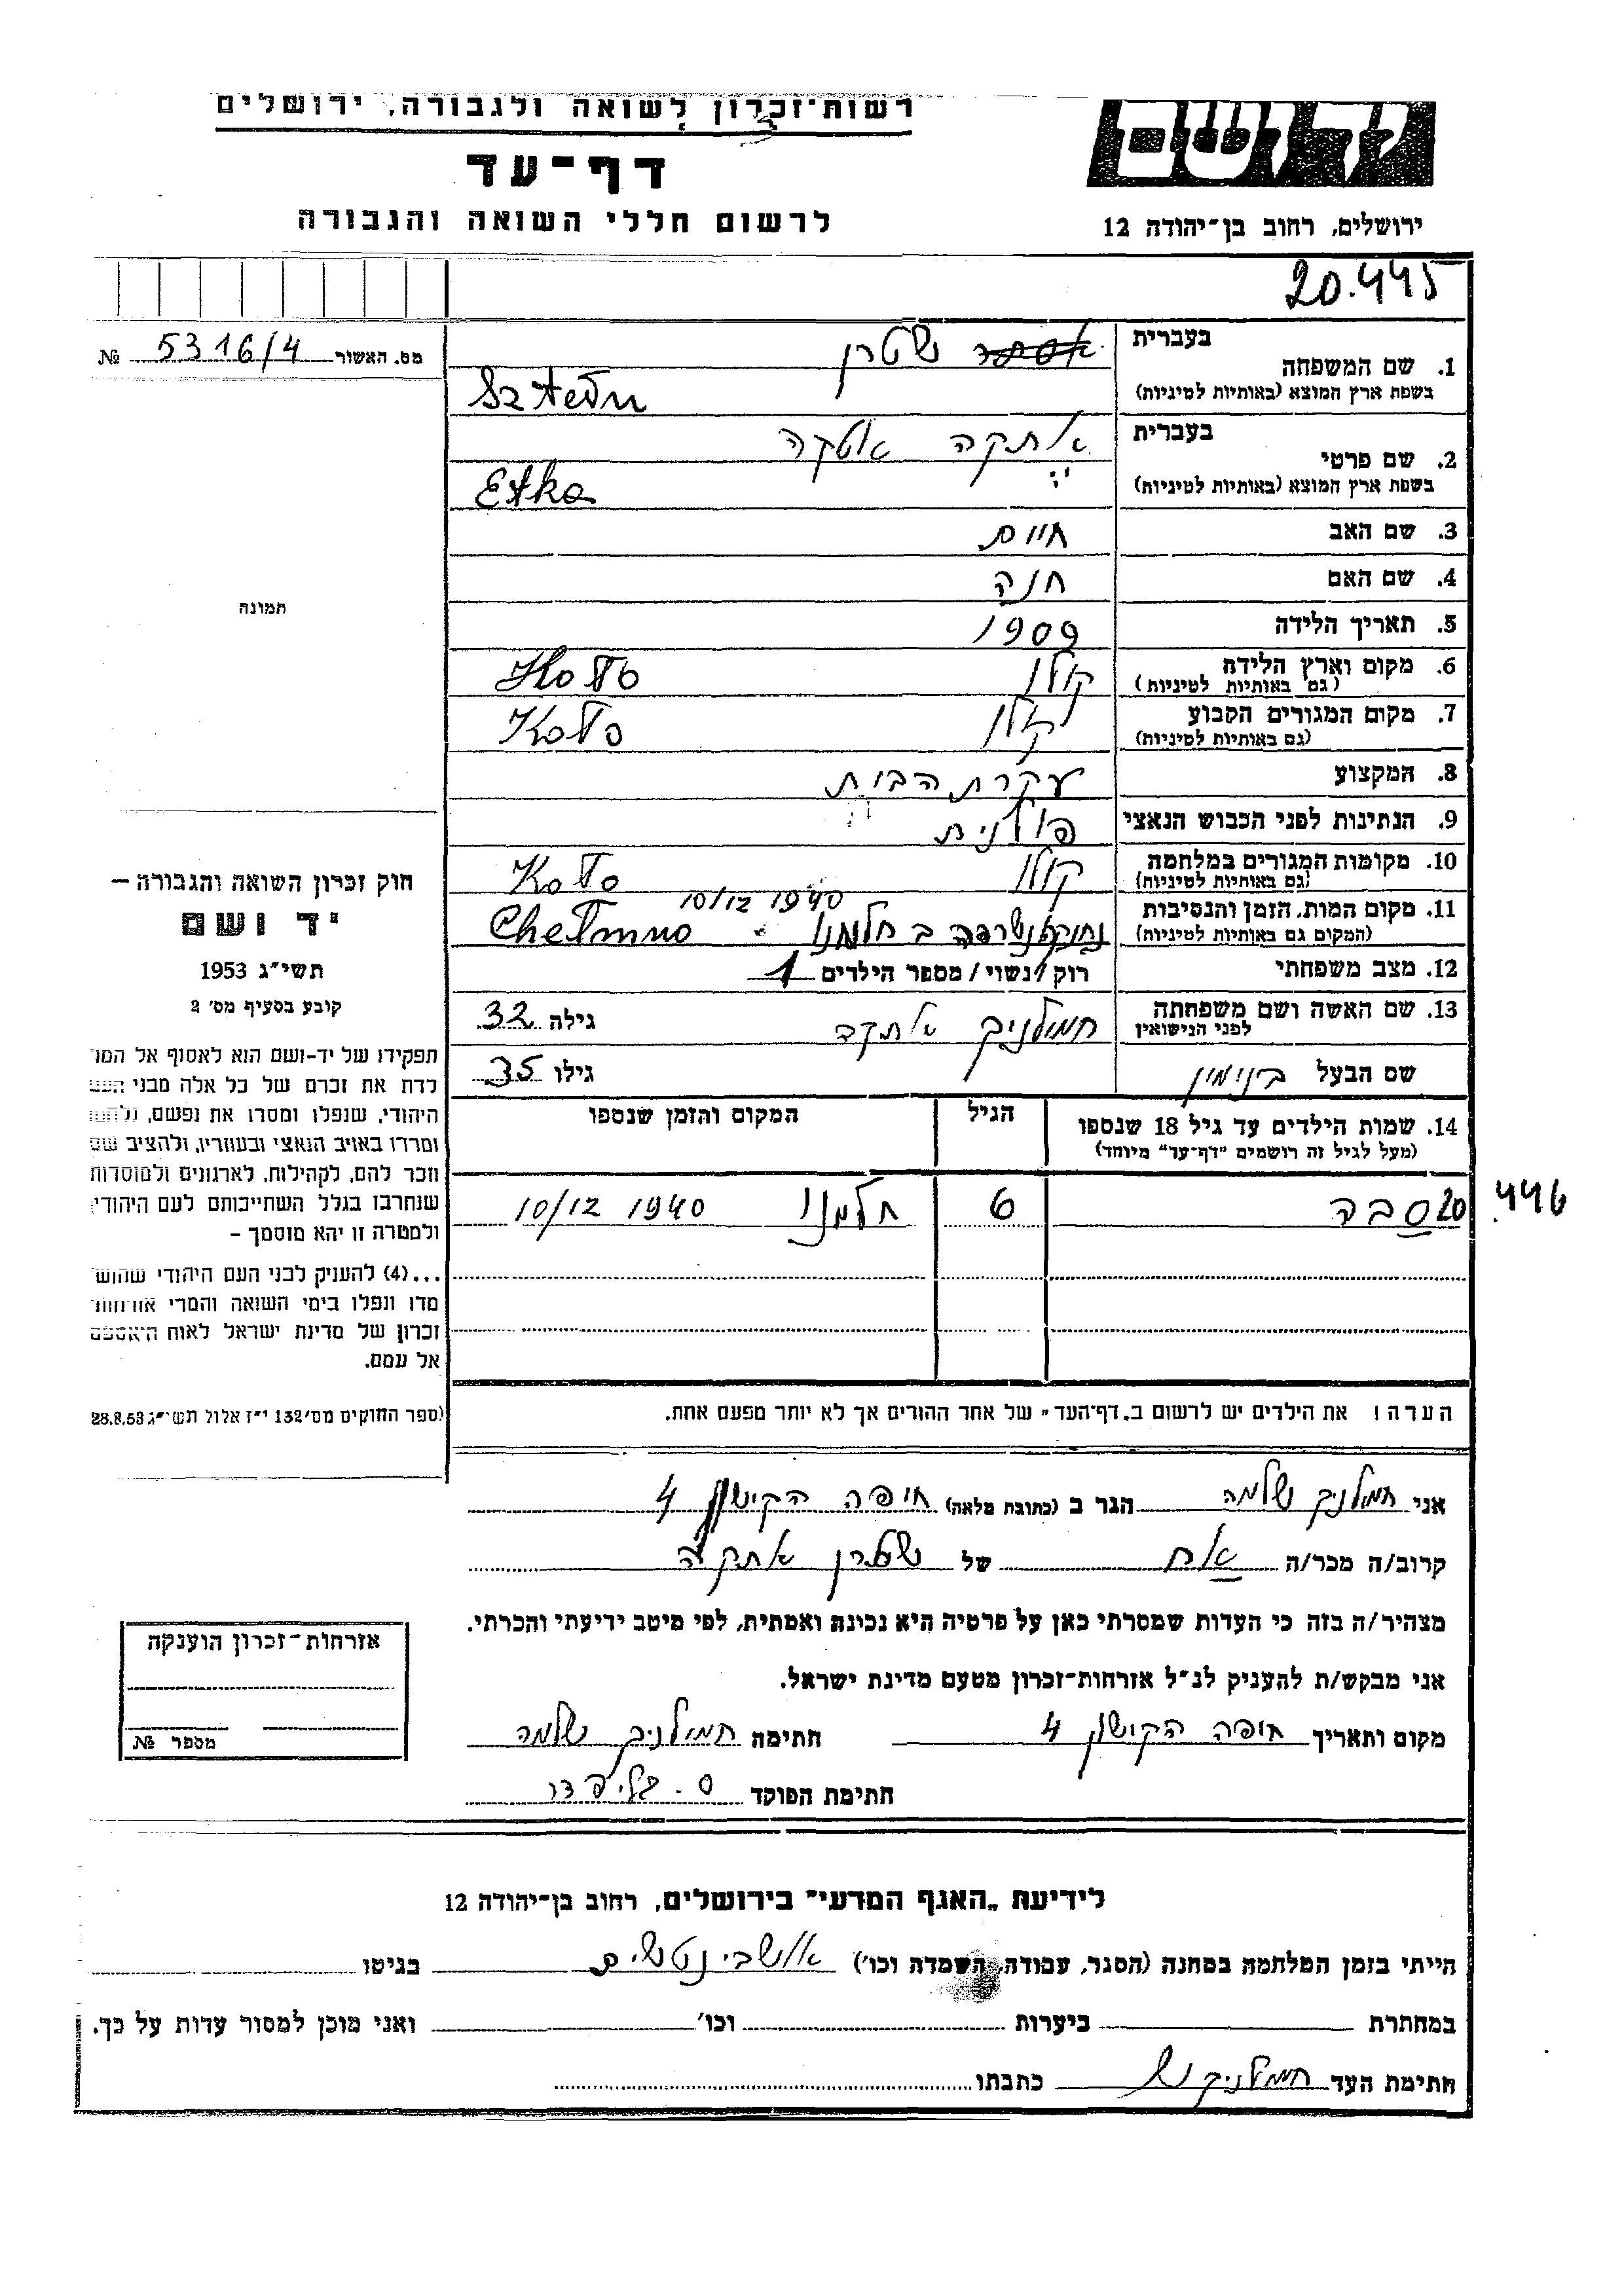 רשות־זכרון לשואה ולגבורה, ירושלים
דף־עד
לרשום חללי השואה והגבורה
יד ושם
ירושלים, רחוב בן־יהודה 12
20.445
מס. האשור 5316/4 №
1. שם המשפחה
בעברית שטרן
בשפת ארץ המוצא (באותיות לטיניות)
2. שם פרטי
בעברית אתקה אטקה
בשפת ארץ המוצא (באותיות לטיניות) Etka
3. שם האב חיים
4. שם האם חנה
5. תאריך הלידה 1909
6. מקום וארץ הלידה קולו Koło
(גם באותיות לטיניות)
7. מקום המגורים הקבוע קולו Koło
(גם באותיות לטיניות)
8. המקצוע עקרת הבית
9. הנתינות לפני הכבוש הנאצי פולנית
10. מקומות המגורים במלחמה קולו Koło
(גם באותיות לטיניות)
11. מקום המות, הזמן והנסיבות 10/12 1940
(המקום גם באותיות לטיניות) ב חלמנו Chełmno
12. מצב משפחתי רוק / נשוי / מספר הילדים 1
13. שם האשה ושם משפחתה חמולניק אתקה גילה 32
לפני הנישואין
שם הבעל בינימין גילו 35
14. שמות הילדים עד גיל 18 שנספו
(מעל לגיל זה רושמים "דף־עד" מיוחד)
הגיל
המקום והזמן שנספו
20.446 סבה 6 חלמנו 10/12 1940
הערה! את הילדים יש לרשום ב„דף־העד" של אחד ההורים אך לא יותר מפעם אחת.
תמונה
חוק זכרון השואה והגבורה —
יד ושם
תשי״ג 1953
קובע בסעיף מס׳ 2
תפקידו של יד-ושם הוא לאסוף אל המו
לדת את זכרם של כל אלה מבני העם
היהודי, שנפלו ומסרו את נפשם, נלחמו
ומרדו באויב הנאצי ובעוזריו, ולהציב שם
וזכר להם, לקהילות, לארגונים ולמוסדות
שנחרבו בגלל השתייכותם לעם היהודי,
ולמטרה זו יהא מוסמך —
...(4) להעניק לבני העם היהודי שהוש־
מדו ונפלו בימי השואה והמרי אזרחות
זכרון של מדינת ישראל לאות היאספם
אל עמם.
(ספר החוקים מס׳ 132 י״ז אלול תשי״ג 28.8.53
אני חמולניק שלמה הגר ב (כתובת מלאה) חיפה הקישון 4
קרוב/ה מכר/ה אח של שטרן אתקה
מצהיר/ה בזה כי העדות שמסרתי כאן על פרטיה היא נכונה ואמתית, לפי מיטב ידיעתי והכרתי.
אני מבקש/ת להעניק לנ״ל אזרחות־זכרון מטעם מדינת ישראל.
מקום ותאריך חיפה הקישון 4 חתימה חמולניק שלמה
חתימת הפוקד
אזרחות־זכרון הוענקה
מספר №
לידיעת „האגף המדעי" בירושלים, רחוב בן־יהודה 12
הייתי בזמן המלחמה במחנה (הסגר, עבודה, השמדה וכו׳) אושבינטשים בגיטו
במחתרת ביערות וכו׳ ואני מוכן למסור עדות על כך.
חתימת העד חמולניק ש כתבתו